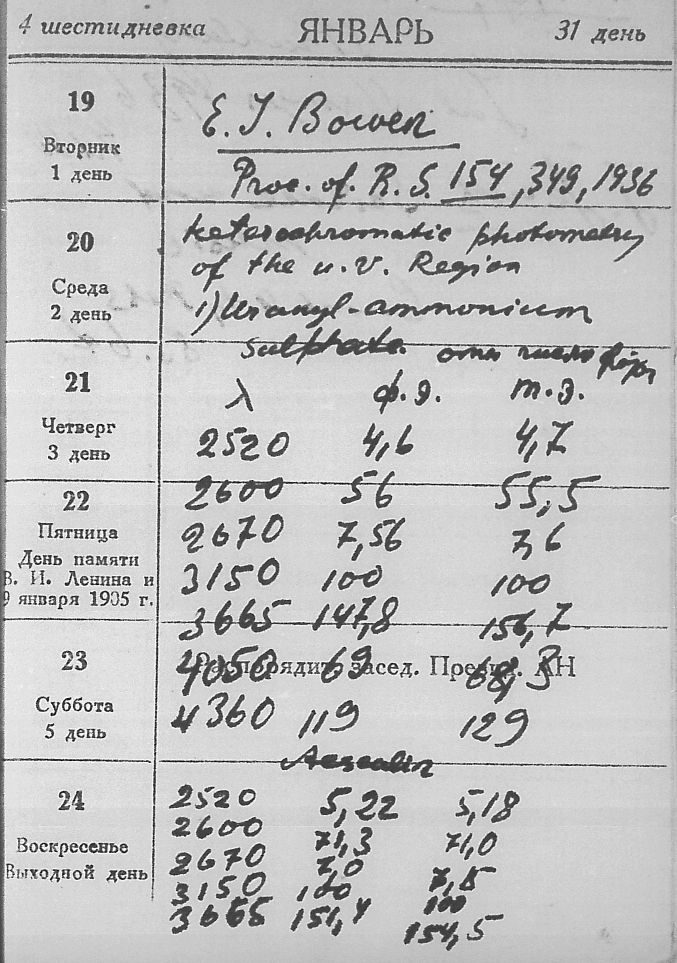 4 шестидневка ЯНВАРЬ 31 день
19
Вторник
1 день
E. J. Bowen
Proc. of. R. S. 154, 349, 1936
20
Среда
2 день
heterochromatic photometry
of the u.V. Region
1) Uranyl-ammonium
sulphate. отн. число
21
Четверг
3 день
λ ф.э. т.э.
2520 4,6 4,7
22
Пятница
День памяти
В. И. Ленина и
9 января 1905 г.
2600 56 55,5
2670 7,56 7,6
3150 100 100
3665 147,8 156,7
23
Суббота
5 день
Распорядит. засед. Презид. АН
4050 69 68,3
4360 119 129
Aesculin
24
Воскресенье
Выходной день
2520 5,22 5,18
2600 71,3 71,0
2670 7,0 7,15
3150 100 100
3665 151,4 154,5